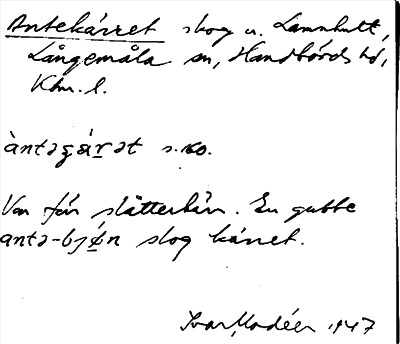 Antekärret skog u. Lammhult,
Långemåla sn, Handbörds hd,
Klm. l.
àntəgár̲ət s.ko.
Var förr slåtterkärr. En gubbe
antə-bjö́n slog kärret.
Ivar Modéer 1947